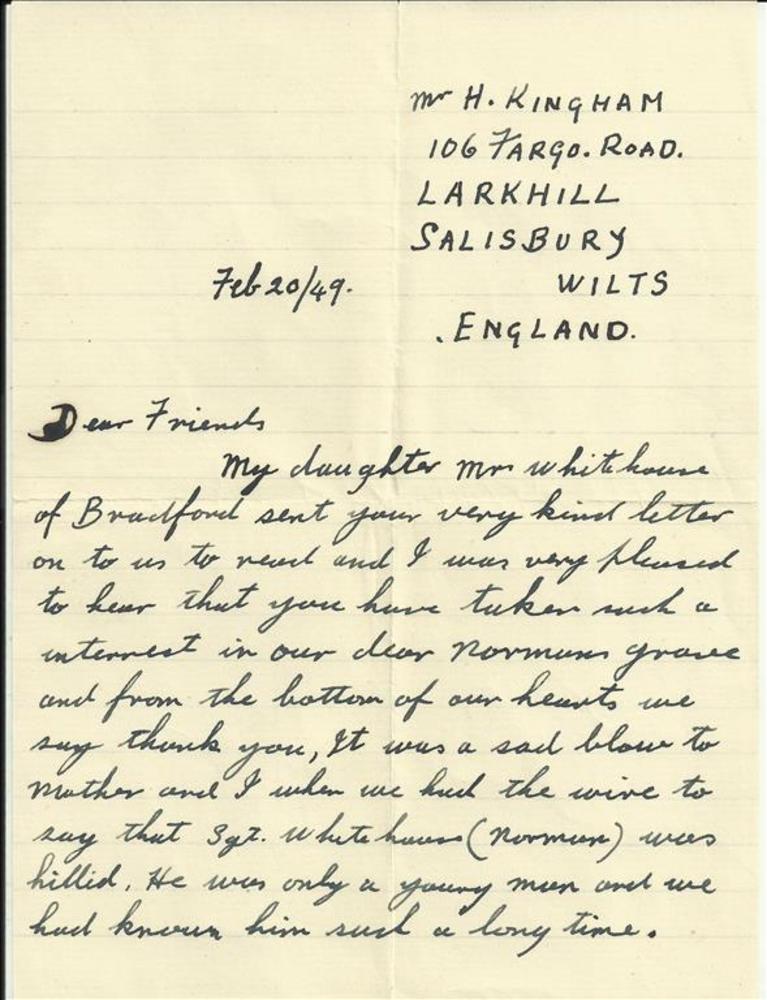 Mr H. KINGHAM
106 FARGO. ROAD.
LARKHILL
SALISBURY
WILTS
Feb 20/49.
. ENGLAND.
Dear Friends
My daughter Mrs Whitehouse
of Bradford sent your very kind letter
on to us to read and I was very pleased
to hear that you have taken such a
interrest in our dear Normans grave
and from the bottom of our hearts we
say thank you, It was a sad blow to
Mother and I when we had the wire to
say that Sgt. Whitehouse (Norman) was
killid. He was only a young man and we
had known him such a long time.